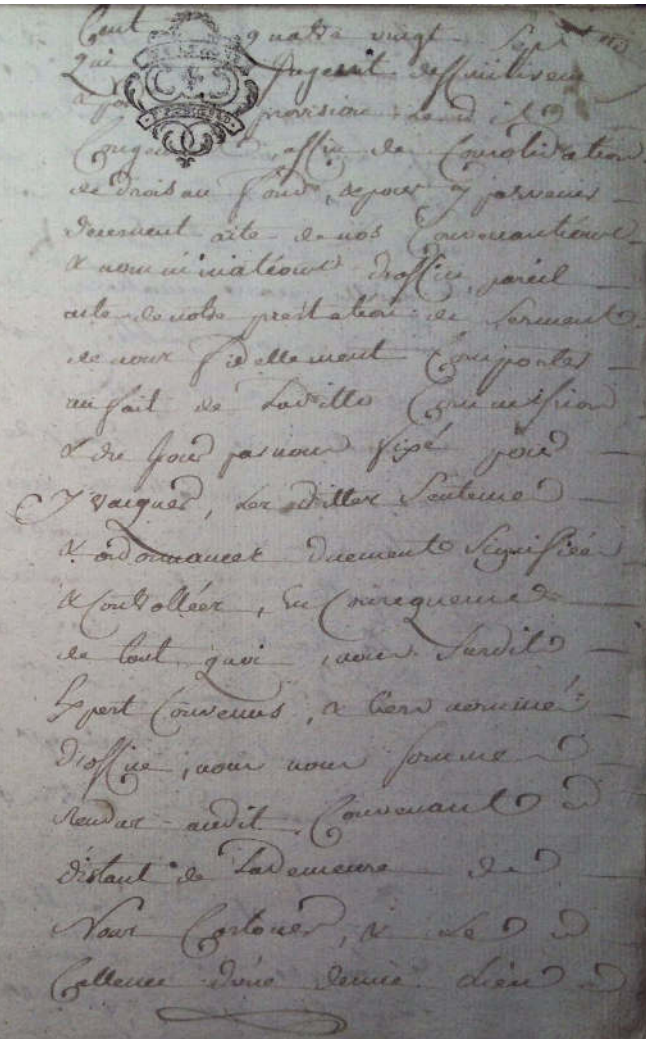 Cent quatre vingt sept
qui jugent deffinitivem
& par provision ledit
Congement, affin de Consolidation
de drois au fond, & pour y parvenir
duement acte de nos Convenantions
& nomminations d'office, pareil
acte de notre prestation de serment
de nous fidellement Comporter
au fait de Laditte Commission
& du jour par nous fixé pour
y vacquer, Les dittes Sentence
& ordonnances duement Signifiée
& Controllées, En Consequence
de tout quoi nous Susdit
Expert Convenus, & tiers nommé
d'office, nous nous sommes
rendus audit Convenant
distant de La demeure de
Nous Corlouer, & Le
Callenec d'une demie Lieu